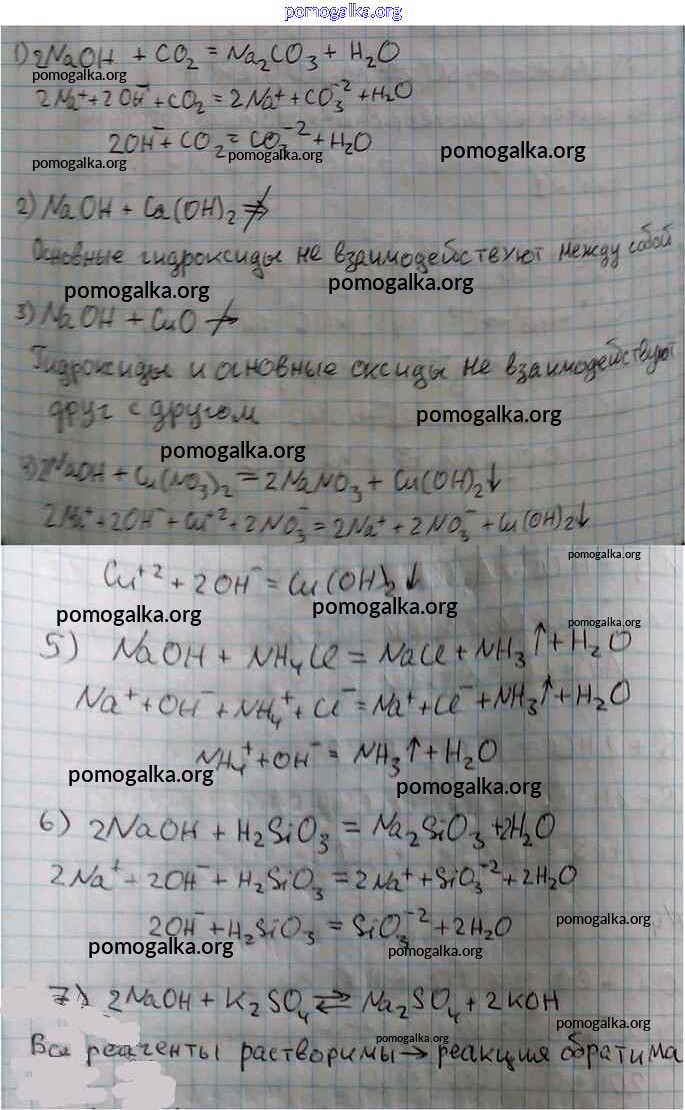 pomogalka.org
1) 2NaOH + CO₂ = Na₂CO₃ + H₂O
pomogalka.org
2Na⁺+2OH⁻+CO₂ = 2Na⁺+CO₃⁻²+H₂O
2OH⁻+CO₂ = CO₃⁻²+H₂O
pomogalka.org pomogalka.org pomogalka.org
2) NaOH + Ca(OH)₂ ⇏
Основные гидроксиды не взаимодействуют между собой
pomogalka.org pomogalka.org
3) NaOH + CuO ↛
Гидроксиды и основные оксиды не взаимодействуют
друг с другом
pomogalka.org
pomogalka.org
2NaOH + Cu(NO₃)₂ = 2NaNO₃ + Cu(OH)₂↓
2Na⁺+2OH⁻+Cu⁺²+2NO₃⁻=2Na⁺+2NO₃⁻+Cu(OH)₂↓
pomogalka.org
Cu⁺² + 2OH⁻ = Cu(OH)₂↓
pomogalka.org pomogalka.org pomogalka.org
5) NaOH + NH₄Cl = NaCl + NH₃↑+H₂O
Na⁺+OH⁻+NH₄⁺+Cl⁻=Na⁺+Cl⁻+NH₃↑+H₂O
NH₄⁺+OH⁻= NH₃↑+H₂O
pomogalka.org pomogalka.org
6) 2NaOH + H₂SiO₃ = Na₂SiO₃+2H₂O
2Na⁺+2OH⁻+H₂SiO₃=2Na⁺+SiO₃⁻²+2H₂O
pomogalka.org
2OH⁻+H₂SiO₃=SiO₃⁻²+2H₂O
pomogalka.org pomogalka.org
7) 2NaOH + K₂SO₄ ⇄ Na₂SO₄+2KOH
pomogalka.org pomogalka.org
Все реагенты растворимы→реакция обратима